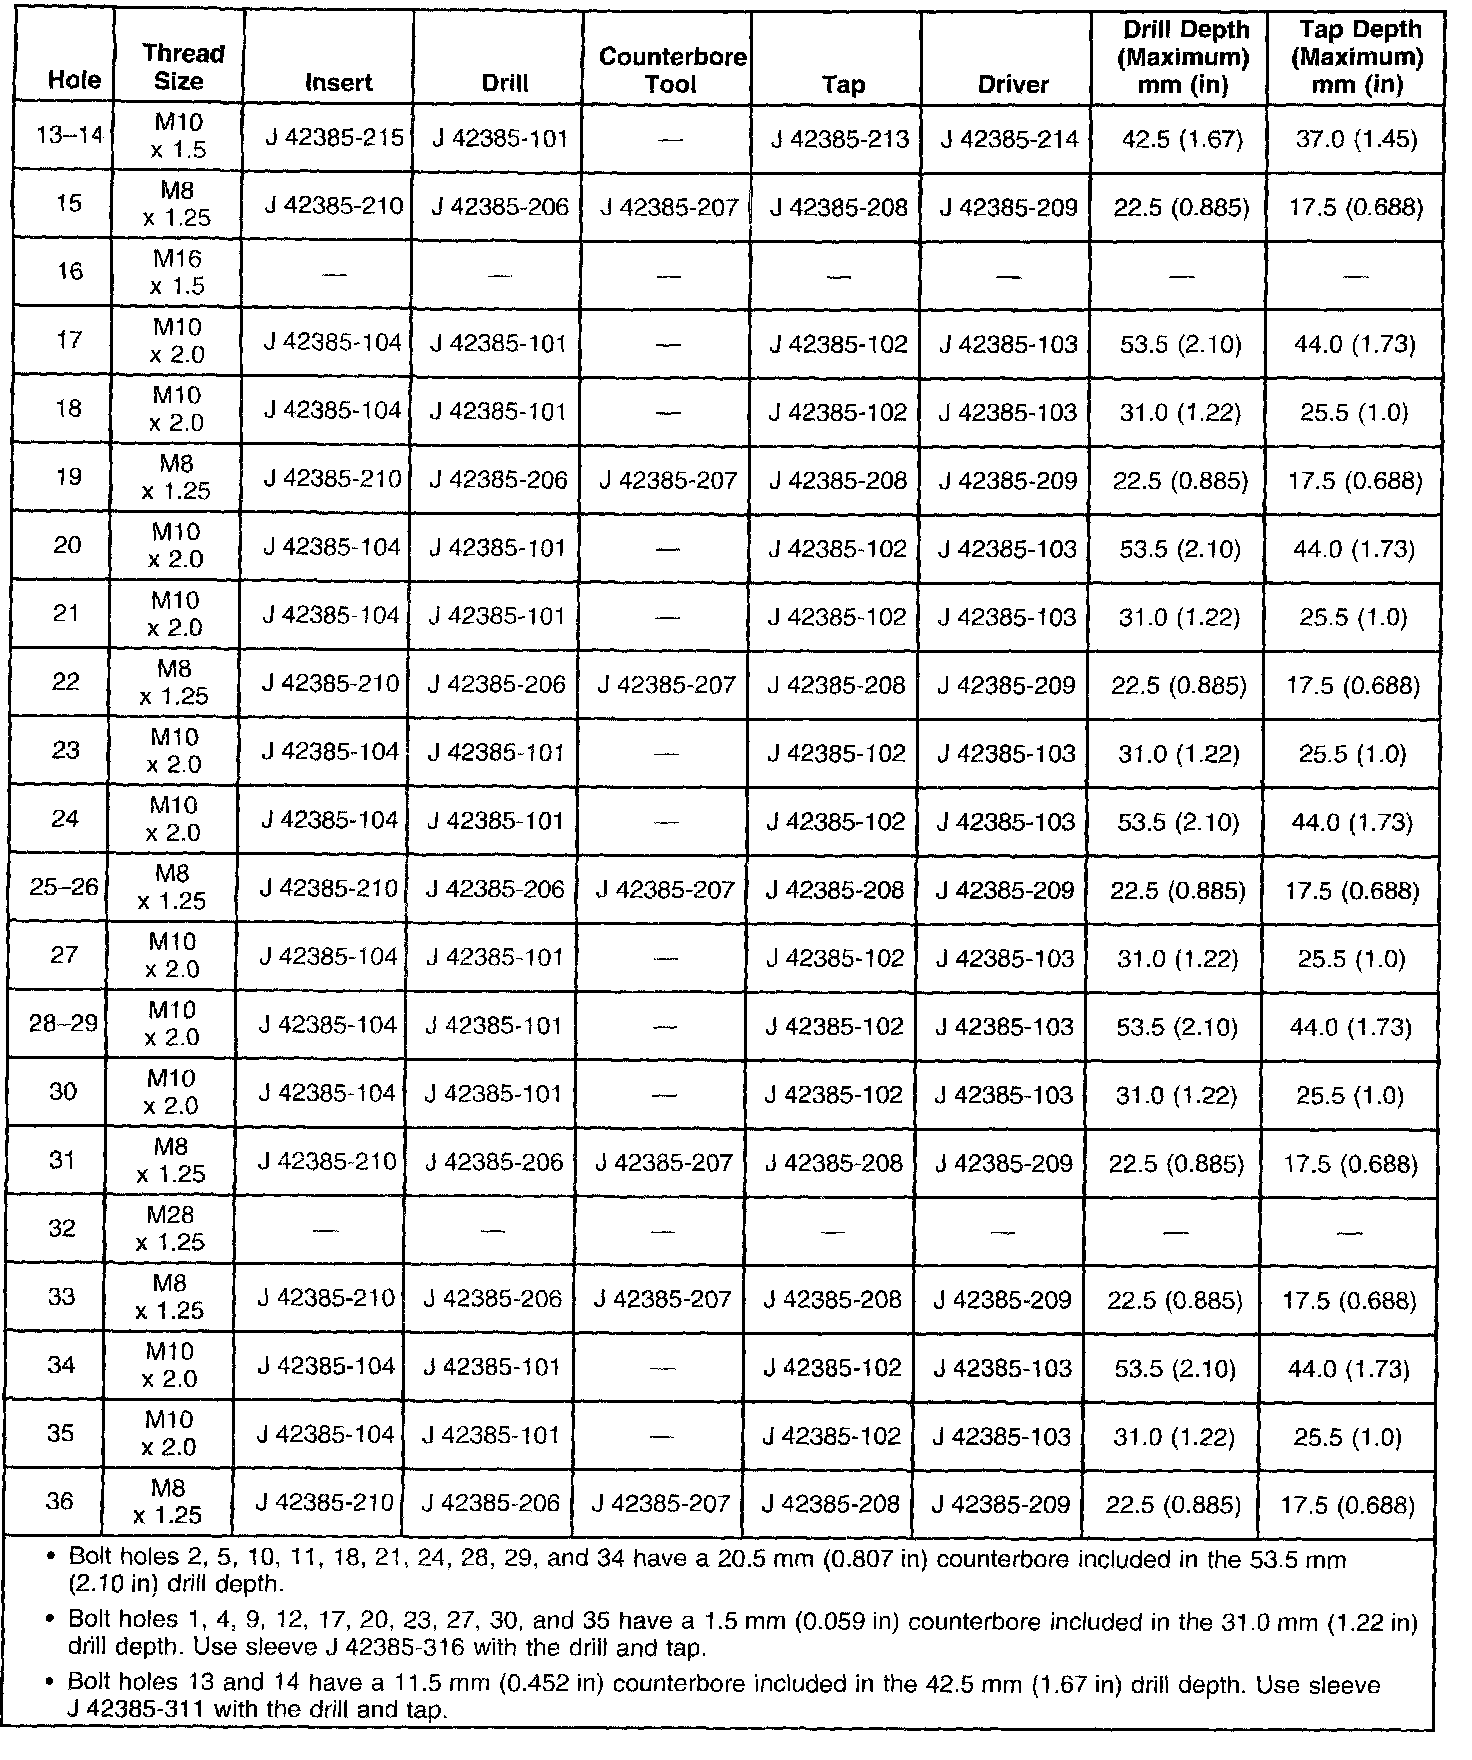 Hole | Thread Size | Insert | Drill | Counterbore Tool | Tap | Driver | Drill Depth (Maximum) mm (in) | Tap Depth (Maximum) mm (in)
13–14 | M10 x 1.5 | J 42385-215 | J 42385-101 | — | J 42385-213 | J 42385-214 | 42.5 (1.67) | 37.0 (1.45)
15 | M8 x 1.25 | J 42385-210 | J 42385-206 | J 42385-207 | J 42385-208 | J 42385-209 | 22.5 (0.885) | 17.5 (0.688)
16 | M16 x 1.5 | — | — | — | — | — | — | —
17 | M10 x 2.0 | J 42385-104 | J 42385-101 | — | J 42385-102 | J 42385-103 | 53.5 (2.10) | 44.0 (1.73)
18 | M10 x 2.0 | J 42385-104 | J 42385-101 | — | J 42385-102 | J 42385-103 | 31.0 (1.22) | 25.5 (1.0)
19 | M8 x 1.25 | J 42385-210 | J 42385-206 | J 42385-207 | J 42385-208 | J 42385-209 | 22.5 (0.885) | 17.5 (0.688)
20 | M10 x 2.0 | J 42385-104 | J 42385-101 | — | J 42385-102 | J 42385-103 | 53.5 (2.10) | 44.0 (1.73)
21 | M10 x 2.0 | J 42385-104 | J 42385-101 | — | J 42385-102 | J 42385-103 | 31.0 (1.22) | 25.5 (1.0)
22 | M8 x 1.25 | J 42385-210 | J 42385-206 | J 42385-207 | J 42385-208 | J 42385-209 | 22.5 (0.885) | 17.5 (0.688)
23 | M10 x 2.0 | J 42385-104 | J 42385-101 | — | J 42385-102 | J 42385-103 | 31.0 (1.22) | 25.5 (1.0)
24 | M10 x 2.0 | J 42385-104 | J 42385-101 | — | J 42385-102 | J 42385-103 | 53.5 (2.10) | 44.0 (1.73)
25–26 | M8 x 1.25 | J 42385-210 | J 42385-206 | J 42385-207 | J 42385-208 | J 42385-209 | 22.5 (0.885) | 17.5 (0.688)
27 | M10 x 2.0 | J 42385-104 | J 42385-101 | — | J 42385-102 | J 42385-103 | 31.0 (1.22) | 25.5 (1.0)
28–29 | M10 x 2.0 | J 42385-104 | J 42385-101 | — | J 42385-102 | J 42385-103 | 53.5 (2.10) | 44.0 (1.73)
30 | M10 x 2.0 | J 42385-104 | J 42385-101 | — | J 42385-102 | J 42385-103 | 31.0 (1.22) | 25.5 (1.0)
31 | M8 x 1.25 | J 42385-210 | J 42385-206 | J 42385-207 | J 42385-208 | J 42385-209 | 22.5 (0.885) | 17.5 (0.688)
32 | M28 x 1.25 | — | — | — | — | — | — | —
33 | M8 x 1.25 | J 42385-210 | J 42385-206 | J 42385-207 | J 42385-208 | J 42385-209 | 22.5 (0.885) | 17.5 (0.688)
34 | M10 x 2.0 | J 42385-104 | J 42385-101 | — | J 42385-102 | J 42385-103 | 53.5 (2.10) | 44.0 (1.73)
35 | M10 x 2.0 | J 42385-104 | J 42385-101 | — | J 42385-102 | J 42385-103 | 31.0 (1.22) | 25.5 (1.0)
36 | M8 x 1.25 | J 42385-210 | J 42385-206 | J 42385-207 | J 42385-208 | J 42385-209 | 22.5 (0.885) | 17.5 (0.688)
• Bolt holes 2, 5, 10, 11, 18, 21, 24, 28, 29, and 34 have a 20.5 mm (0.807 in) counterbore included in the 53.5 mm
(2.10 in) drill depth.
• Bolt holes 1, 4, 9, 12, 17, 20, 23, 27, 30, and 35 have a 1.5 mm (0.059 in) counterbore included in the 31.0 mm (1.22 in)
drill depth. Use sleeve J 42385-316 with the drill and tap.
• Bolt holes 13 and 14 have a 11.5 mm (0.452 in) counterbore included in the 42.5 mm (1.67 in) drill depth. Use sleeve
J 42385-311 with the drill and tap.